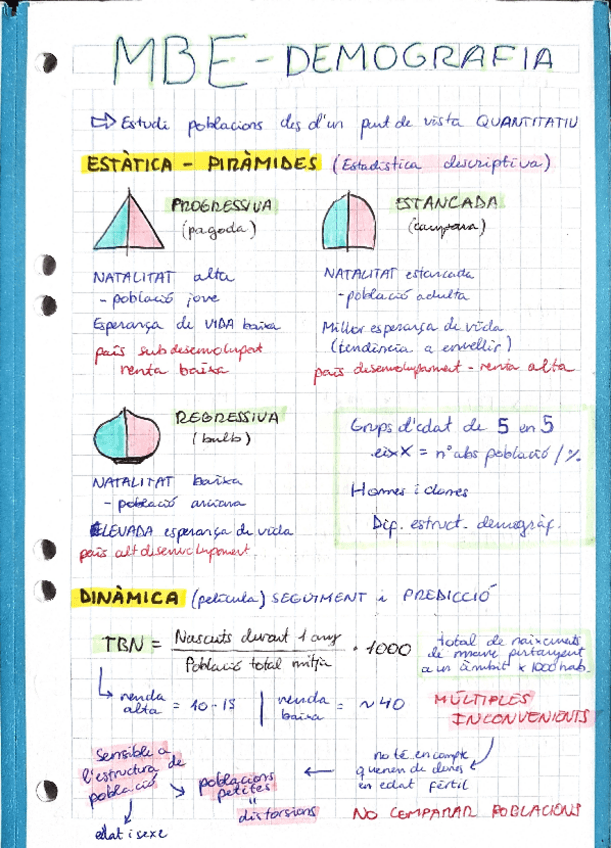 MBE - DEMOGRAFIA
⇨ Estudi poblacions des d'un punt de vista QUANTITATIU
ESTÀTICA - PIRÀMIDES (Estadística descriptiva)
PROGRESSIVA
(pagoda)
NATALITAT alta
- població jove
Esperança de VIDA baixa
país subdesenvolupat
renta baixa
ESTANCADA
(campana)
NATALITAT estancada
- població adulta
Millor esperança de vida
(tendència a envellir)
país desenvolupament - renta alta
REGRESSIVA
(bulb)
NATALITAT baixa
- població anciana
ELEVADA esperança de vida
país alt desenvolupament
Grups d'edat de 5 en 5
eix X = nº abs població / %
Homes i dones
Dif. estruct. demogràf.
DINÀMICA (película) SEGUIMENT i PREDICCIÓ
TBN = Nascuts durant 1 any / Població total mitja · 1000
total de naixements
de mare pertanyent
a un àmbit x 1000 hab.
renda alta = 10-15 | renda baixa = ~40
MÚLTIPLES
INCONVENIENTS
no té en compte
quenen de dones
en edat fèrtil
NO COMPARAR POBLACIONS
Sensible a
l'estructura de
població
edat i sexe
poblacions
petites
=
distorsions